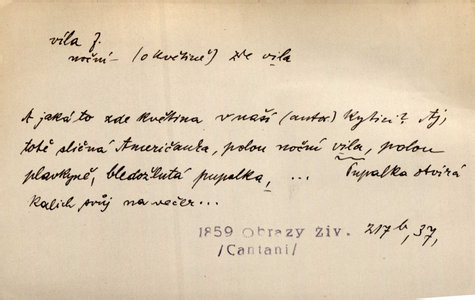 víla f.
noční – (o květině) zde vila
A jaká to zde květina v naší (autor) Kytici? Aj,
totě sličná Američanka, polou noční vila, polou
plavkyně, bledožlutá pupalka, ... Pupalka otvírá
kalich svůj na večer...
1859 Obrazy živ. 217b, 37,
/Cantani/